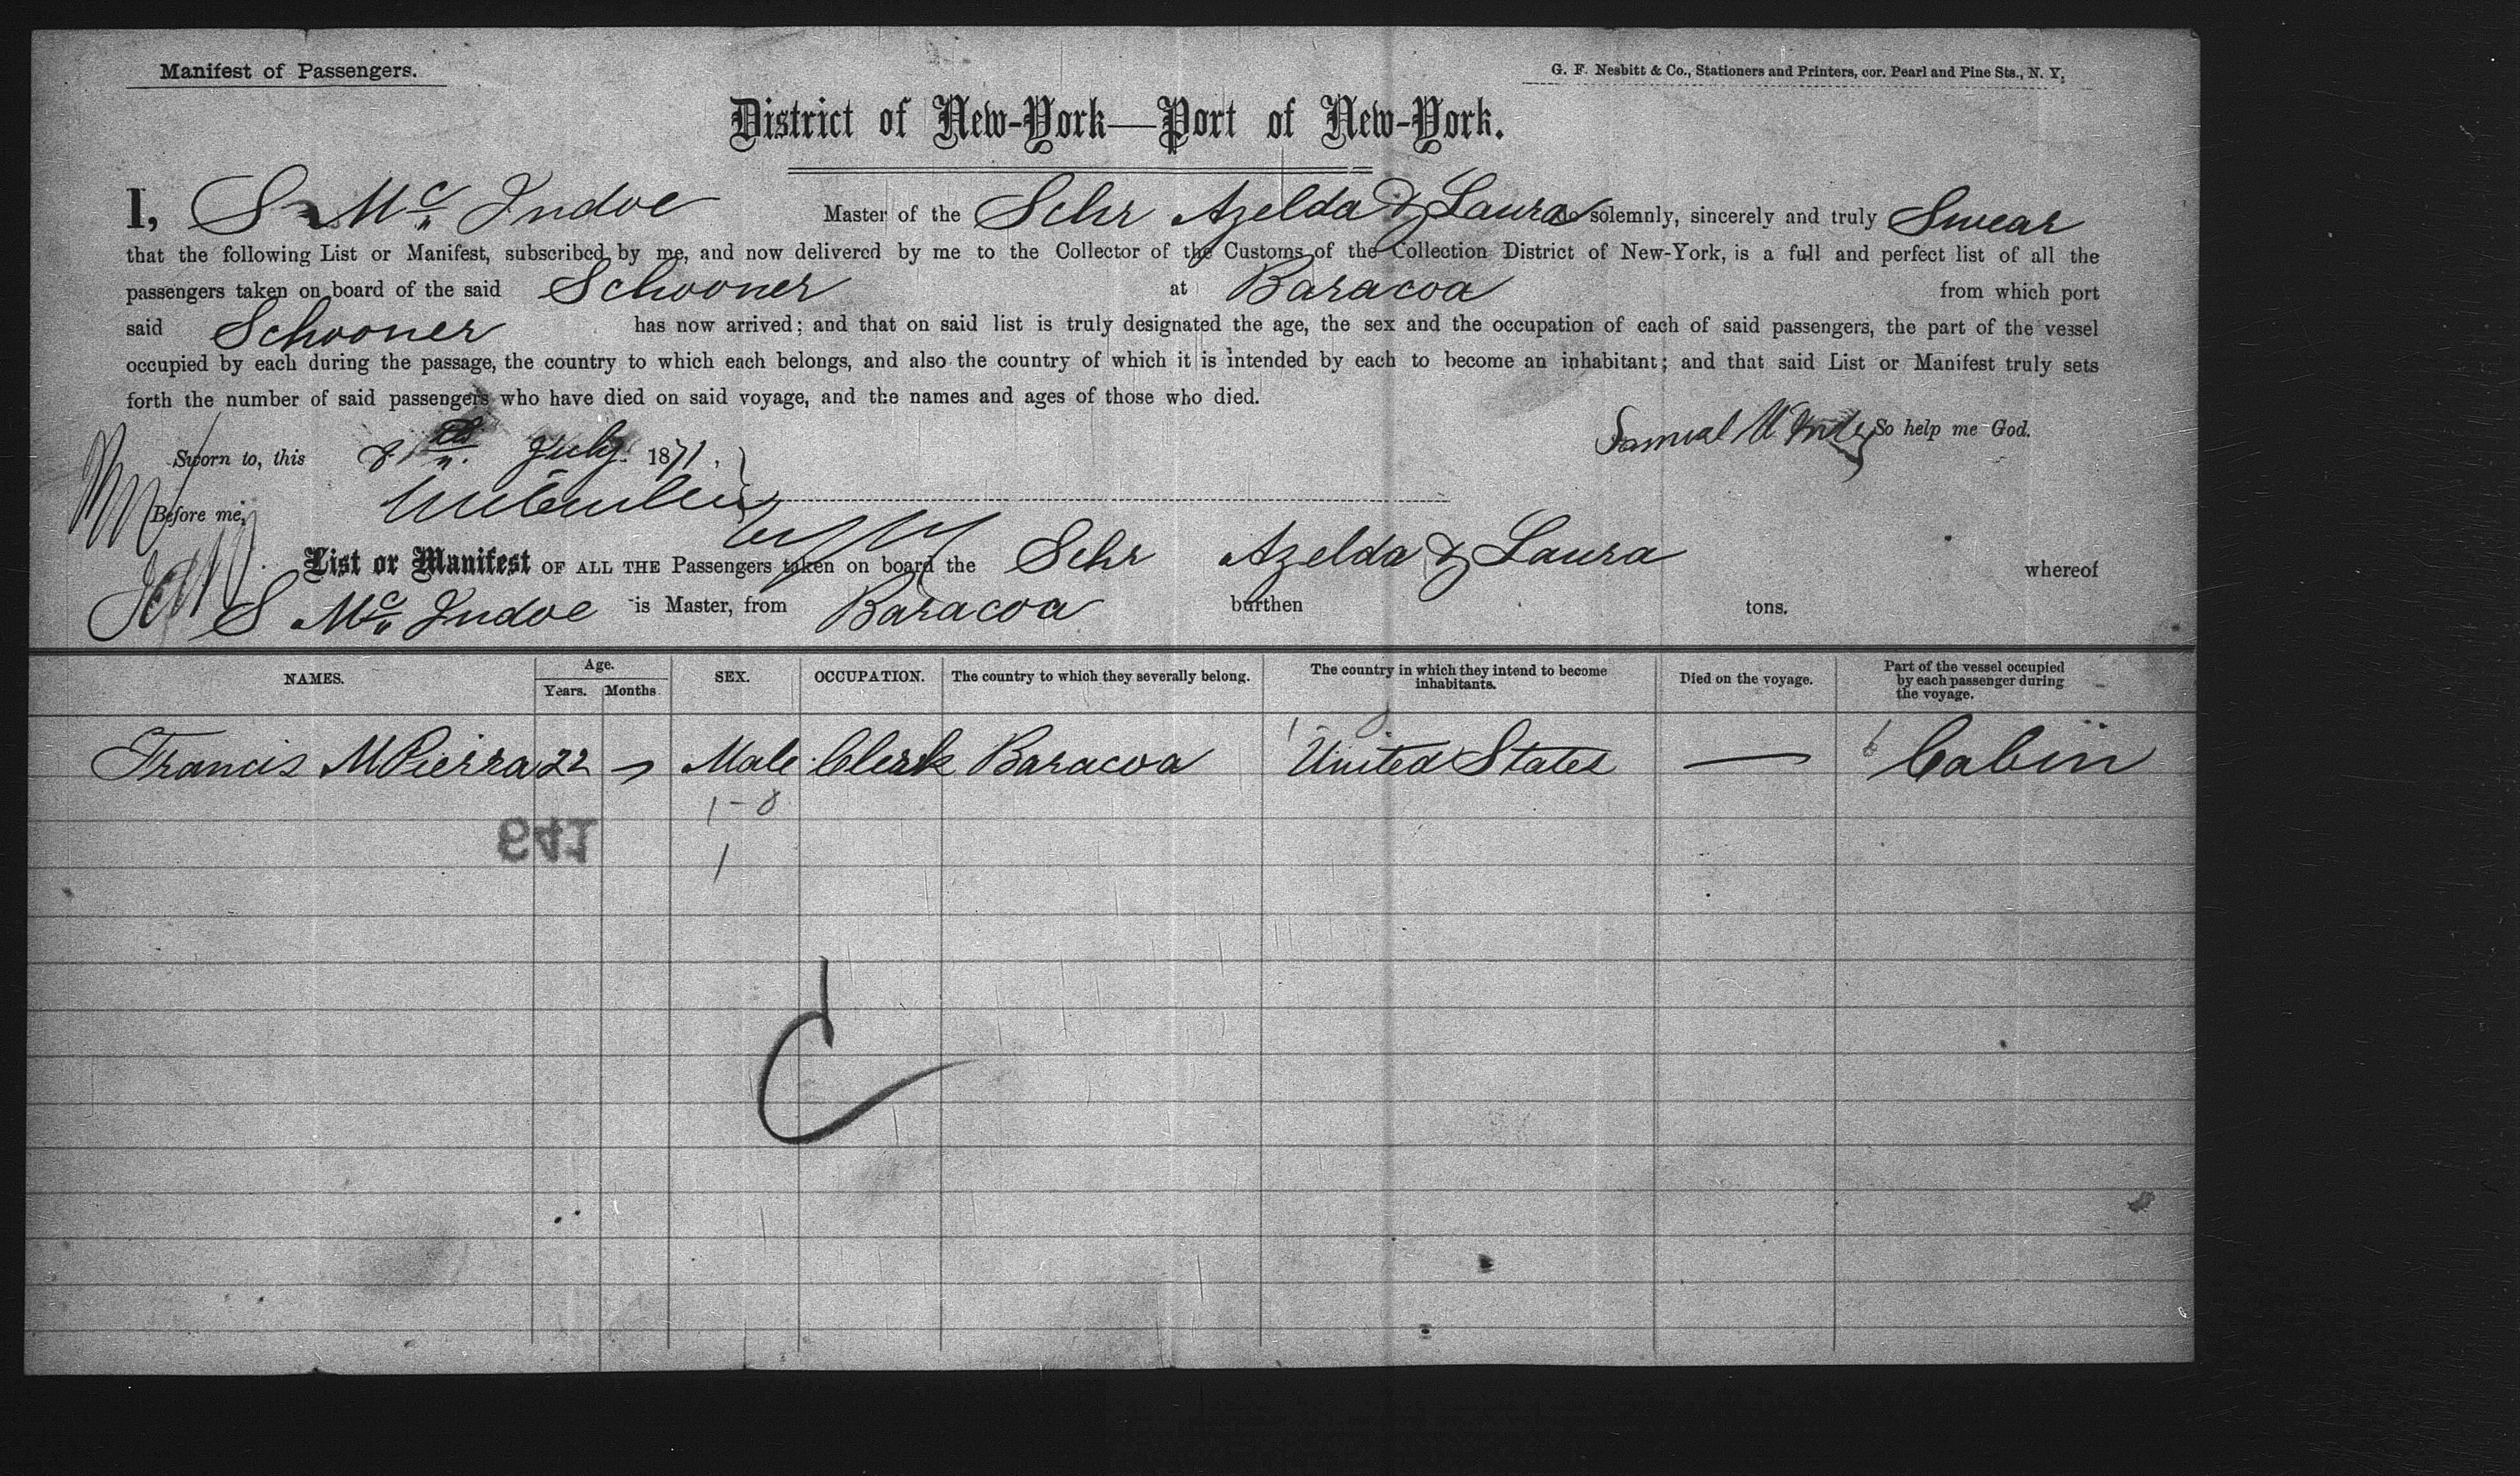 Manifest of Passengers.
G. F. Nesbitt & Co., Stationers and Printers, cor. Pearl and Pine Sts., N. Y.
District of New-York—Port of New-York.
I, S Mc Indoe Master of the Schr Azelda & Laura do solemnly, sincerely and truly Swear
that the following List or Manifest, subscribed by me, and now delivered by me to the Collector of the Customs of the Collection District of New-York, is a full and perfect list of all the
passengers taken on board of the said Schooner at Baracoa from which port
said Schooner has now arrived; and that on said list is truly designated the age, the sex and the occupation of each of said passengers, the part of the vessel
occupied by each during the passage, the country to which each belongs, and also the country of which it is intended by each to become an inhabitant; and that said List or Manifest truly sets
forth the number of said passengers who have died on said voyage, and the names and ages of those who died.
Samuel So help me God.
Sworn to, this July 1871,
Before me,
List or Manifest OF ALL THE Passengers taken on board the Schr Azelda & Laura whereof
S Mc Indoe is Master, from Baracoa burthen tons.
NAMES. Age. Years. Months SEX. OCCUPATION. The country to which they severally belong. The country in which they intend to become inhabitants. Died on the voyage. Part of the vessel occupied by each passenger during the voyage.
Francis M Pierra 22 Male Clerk Baracoa United States — Cabin
1 - 8
641
1
C